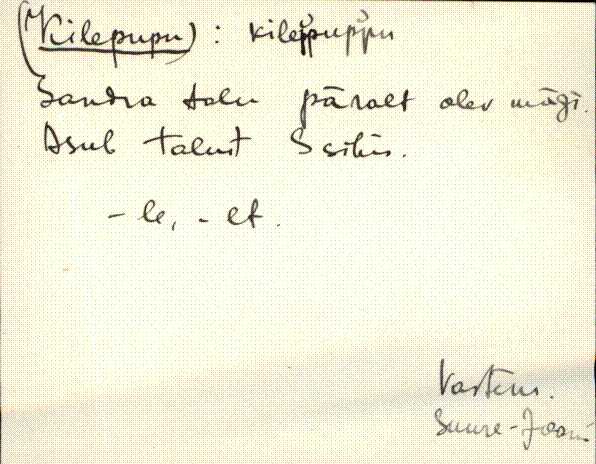 (Kilepupu) : kilep̌pup̌pu
Sandra talu päralt olev mägi.
Asub talust S sihis.
-le, -et.
Vastem.
Suure-Jaani